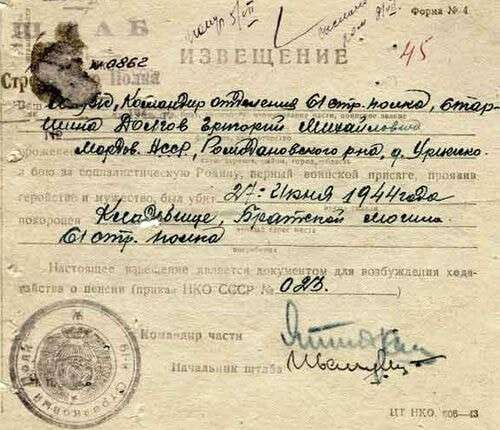 Форма № 4
ШТАБ
№ 0862
ИЗВЕЩЕНИЕ
45
Полка
Ваш муж, Командир отделения 61 стр. полка, стар-
шина Долгов Григорий Михайлович
Мордов. АССР, Ромодановского р-на, д.
в бою за социалистическую Родину, верный воинской присяге, проявив
геройство и мужество, был убит 27 Июня 1944 года
похоронен Кладбище, Братской могиле
61 стр. полка
Настоящее извещение является документом для возбуждения хода-
тайства о пенсии (приказ НКО СССР № 023.)
Командир части
Начальник штаба
НКО. 606—43